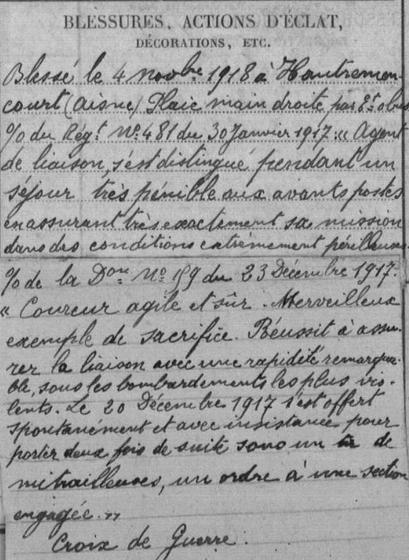 BLESSURES, ACTIONS D'ÉCLAT,
DÉCORATIONS, ETC.
Blessé le 4 novbre 1918 à Hautremen-
court (Aisne) Plaie main droite par Et obus
% du Régt No 481 du 30 Janvier 1917 « Agent
de liaison, s'est distingué pendant un
séjour très pénible aux avants postes
en assurant très exactement sa mission
dans des conditions extrêmement périlleuses
% de la Don No 159 du 23 Décembre 1917.
« Coureur agile et sûr. Merveilleux
exemple de sacrifice. Réussit à assu-
rer la liaison avec une rapidité remarqua-
ble, sous les bombardements les plus vio-
lents. Le 20 Décembre 1917 s'est offert
spontanément et avec insistance pour
porter deux fois de suite sous un de
mitrailleuses, un ordre à une section
engagée. »
Croix de Guerre.